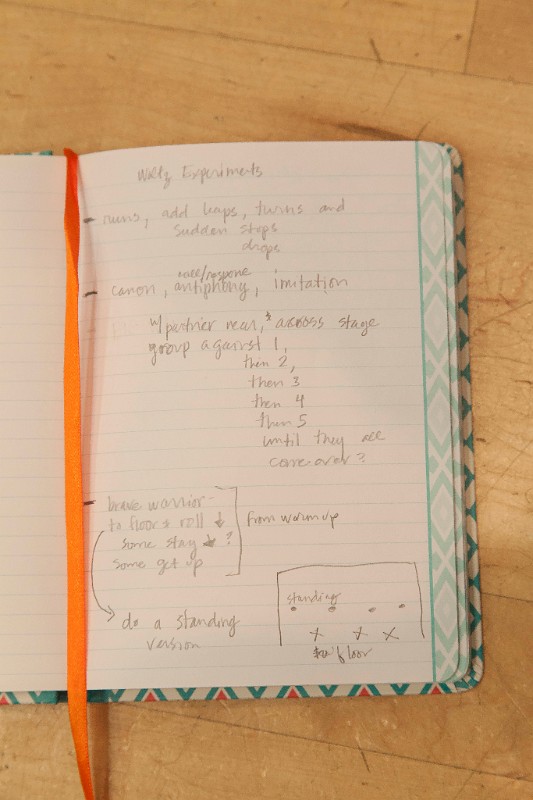 Waltz Experiments
- runs, add leaps, turns and
sudden stops
drops
call/response
- canon, antiphony, imitation
w/partner near, & across stage
group against 1,
then 2,
then 3
then 4
then 5
until they all
come over?
- brave warrior -
to floor & roll ↓
some stay ↓ ?
some get up
from warm up
do a standing
version
standing
x x x
floor